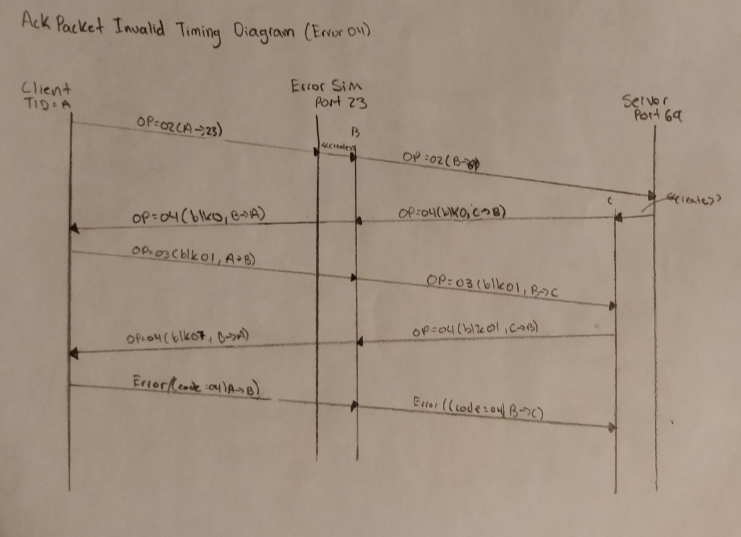 Ack Packet Invalid Timing Diagram (Error 04)
Client
TID=A
Error Sim
Port 23
Server
Port 69
B
OP=02(A→23)
<<create>>
OP=02(B→69
C
<<create>>
OP=04(blk0, B→A)
OP=04(blk0, C→B)
OP=03(blk01, A→B)
OP=03(blk01, B→C
OP=04(blk07, B→A)
OP=04(blk01, C→B)
Error((code:04)A→B)
Error((code:04)B→C)